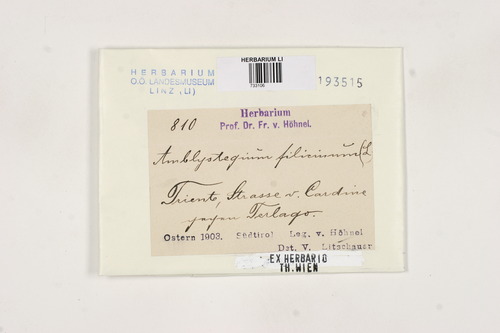 HERBARIUM LI
733106
HERBARIUM
O.Ö. LANDESMUSEUM
LINZ (LI)
193515
Herbarium
Prof. Dr. Fr. v. Höhnel.
810
Amblystegium filicinum (L.
Trient, Strasse v. Cardine
gegen Terlago.
Ostern 1903. Südtirol Leg. v. Höhnel
Det. V. Litschauer
EX HERBARIO
TH. WIEN